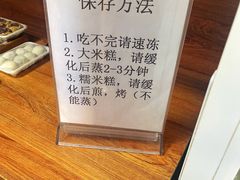 保存方法
1. 吃不完请速冻
2. 大米糕，请缓
化后蒸2-3分钟
3. 糯米糕，请缓
化后煎，烤（不
能蒸）